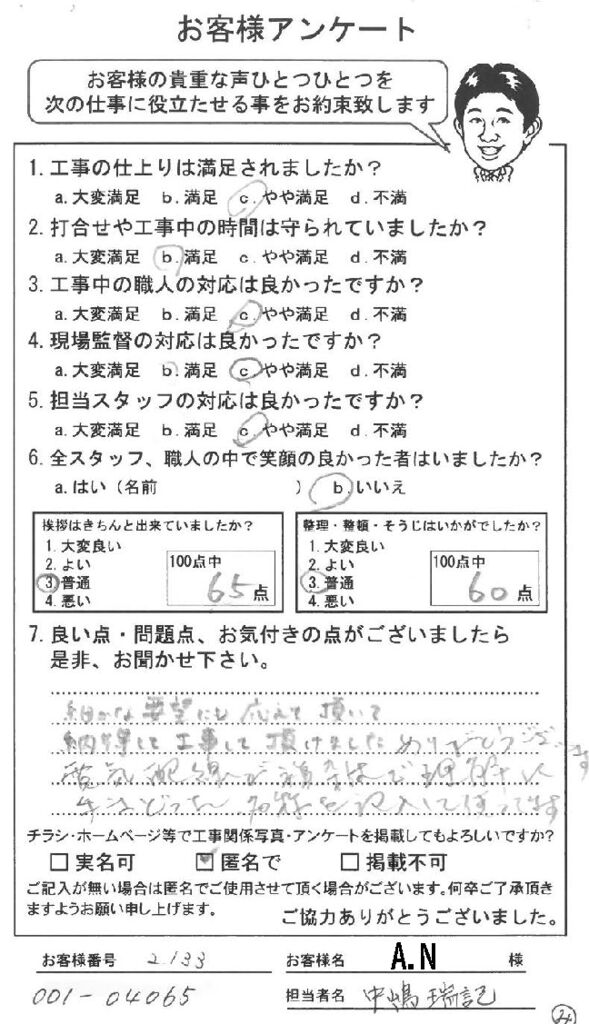 お客様アンケート
お客様の貴重な声ひとつひとつを
次の仕事に役立たせる事をお約束致します
1. 工事の仕上りは満足されましたか？
a.大変満足 b.満足 c.やや満足 d.不満
2. 打合せや工事中の時間は守られていましたか？
a.大変満足 b.満足 c.やや満足 d.不満
3. 工事中の職人の対応は良かったですか？
a.大変満足 b.満足 c.やや満足 d.不満
4. 現場監督の対応は良かったですか？
a.大変満足 b.満足 c.やや満足 d.不満
5. 担当スタッフの対応は良かったですか？
a.大変満足 b.満足 c.やや満足 d.不満
6. 全スタッフ、職人の中で笑顔の良かった者はいましたか？
a.はい（名前 ） b.いいえ
挨拶はきちんと出来ていましたか？
1.大変良い
2.よい
3.普通
4.悪い
100点中
65点
整理・整頓・そうじはいかがでしたか？
1.大変良い
2.よい
3.普通
4.悪い
100点中
60点
7. 良い点・問題点、お気付きの点がございましたら
是非、お聞かせ下さい。
細かな要望にも応えて頂いて
納得して工事して頂けました ありがとうございます
電気配線が複雑で理解
名称を記入して使ってます
チラシ・ホームページ等で工事関係写真・アンケートを掲載してもよろしいですか？
実名可 匿名で 掲載不可
ご記入が無い場合は匿名でご使用させて頂く場合がございます。何卒ご了承頂き
ますようお願い申し上げます。
ご協力ありがとうございました。
お客様番号 2133
お客様名 A.N 様
001-04065
担当者名 中嶋 瑞記